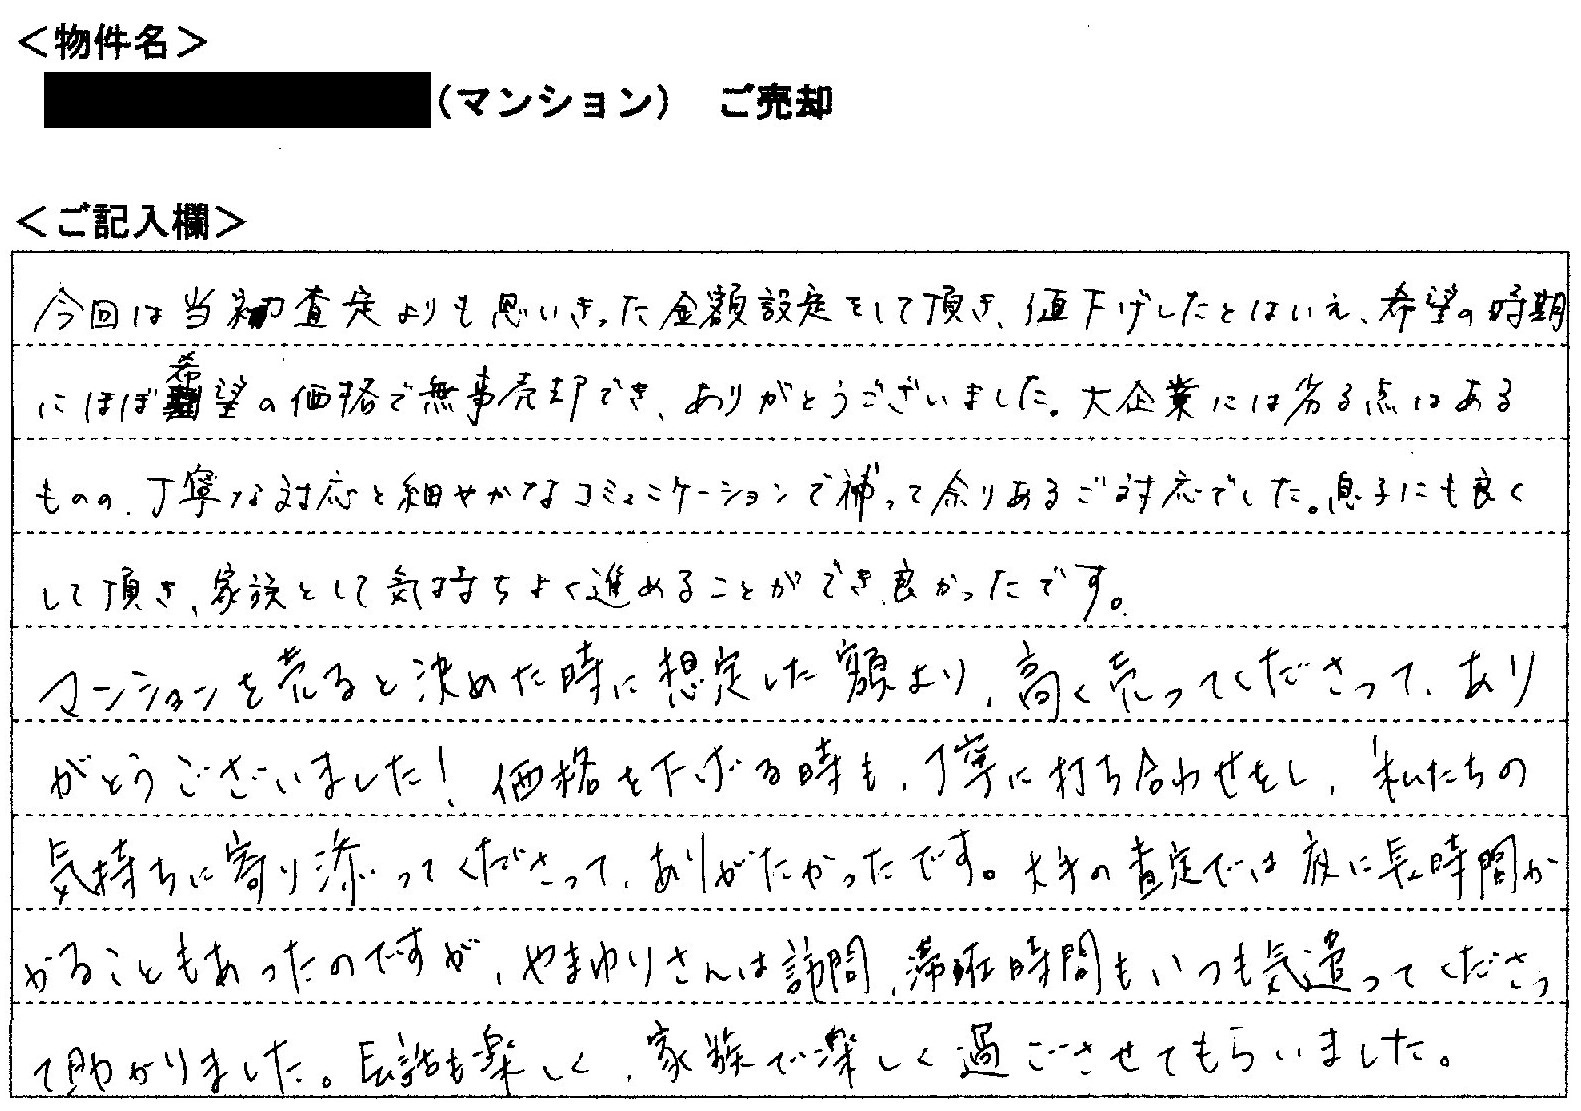 ＜物件名＞
（マンション）　ご売却
＜ご記入欄＞
今回は当初査定よりも思いきった金額設定をして頂き、値下げしたとはいえ、希望の時期
にほぼ希望の価格で無事売却でき、ありがとうございました。大企業には劣る点はある
ものの、丁寧な対応と細やかなコミュニケーションで補って余りあるご対応でした。息子にも良く
して頂き、家族として気持ちよく進めることができ良かったです。
マンションを売ると決めた時に想定した額より、高く売ってくださって、あり
がとうございました！価格を下げる時も、丁寧に打ち合わせをし、私たちの
気持ちに寄り添ってくださって、ありがたかったです。大手の査定では夜に長時間か
かることもあったのですが、やまゆりさんは訪問、滞在時間もいつも気遣ってくださっ
て助かりました。会話も楽しく、家族で楽しく過ごさせてもらいました。